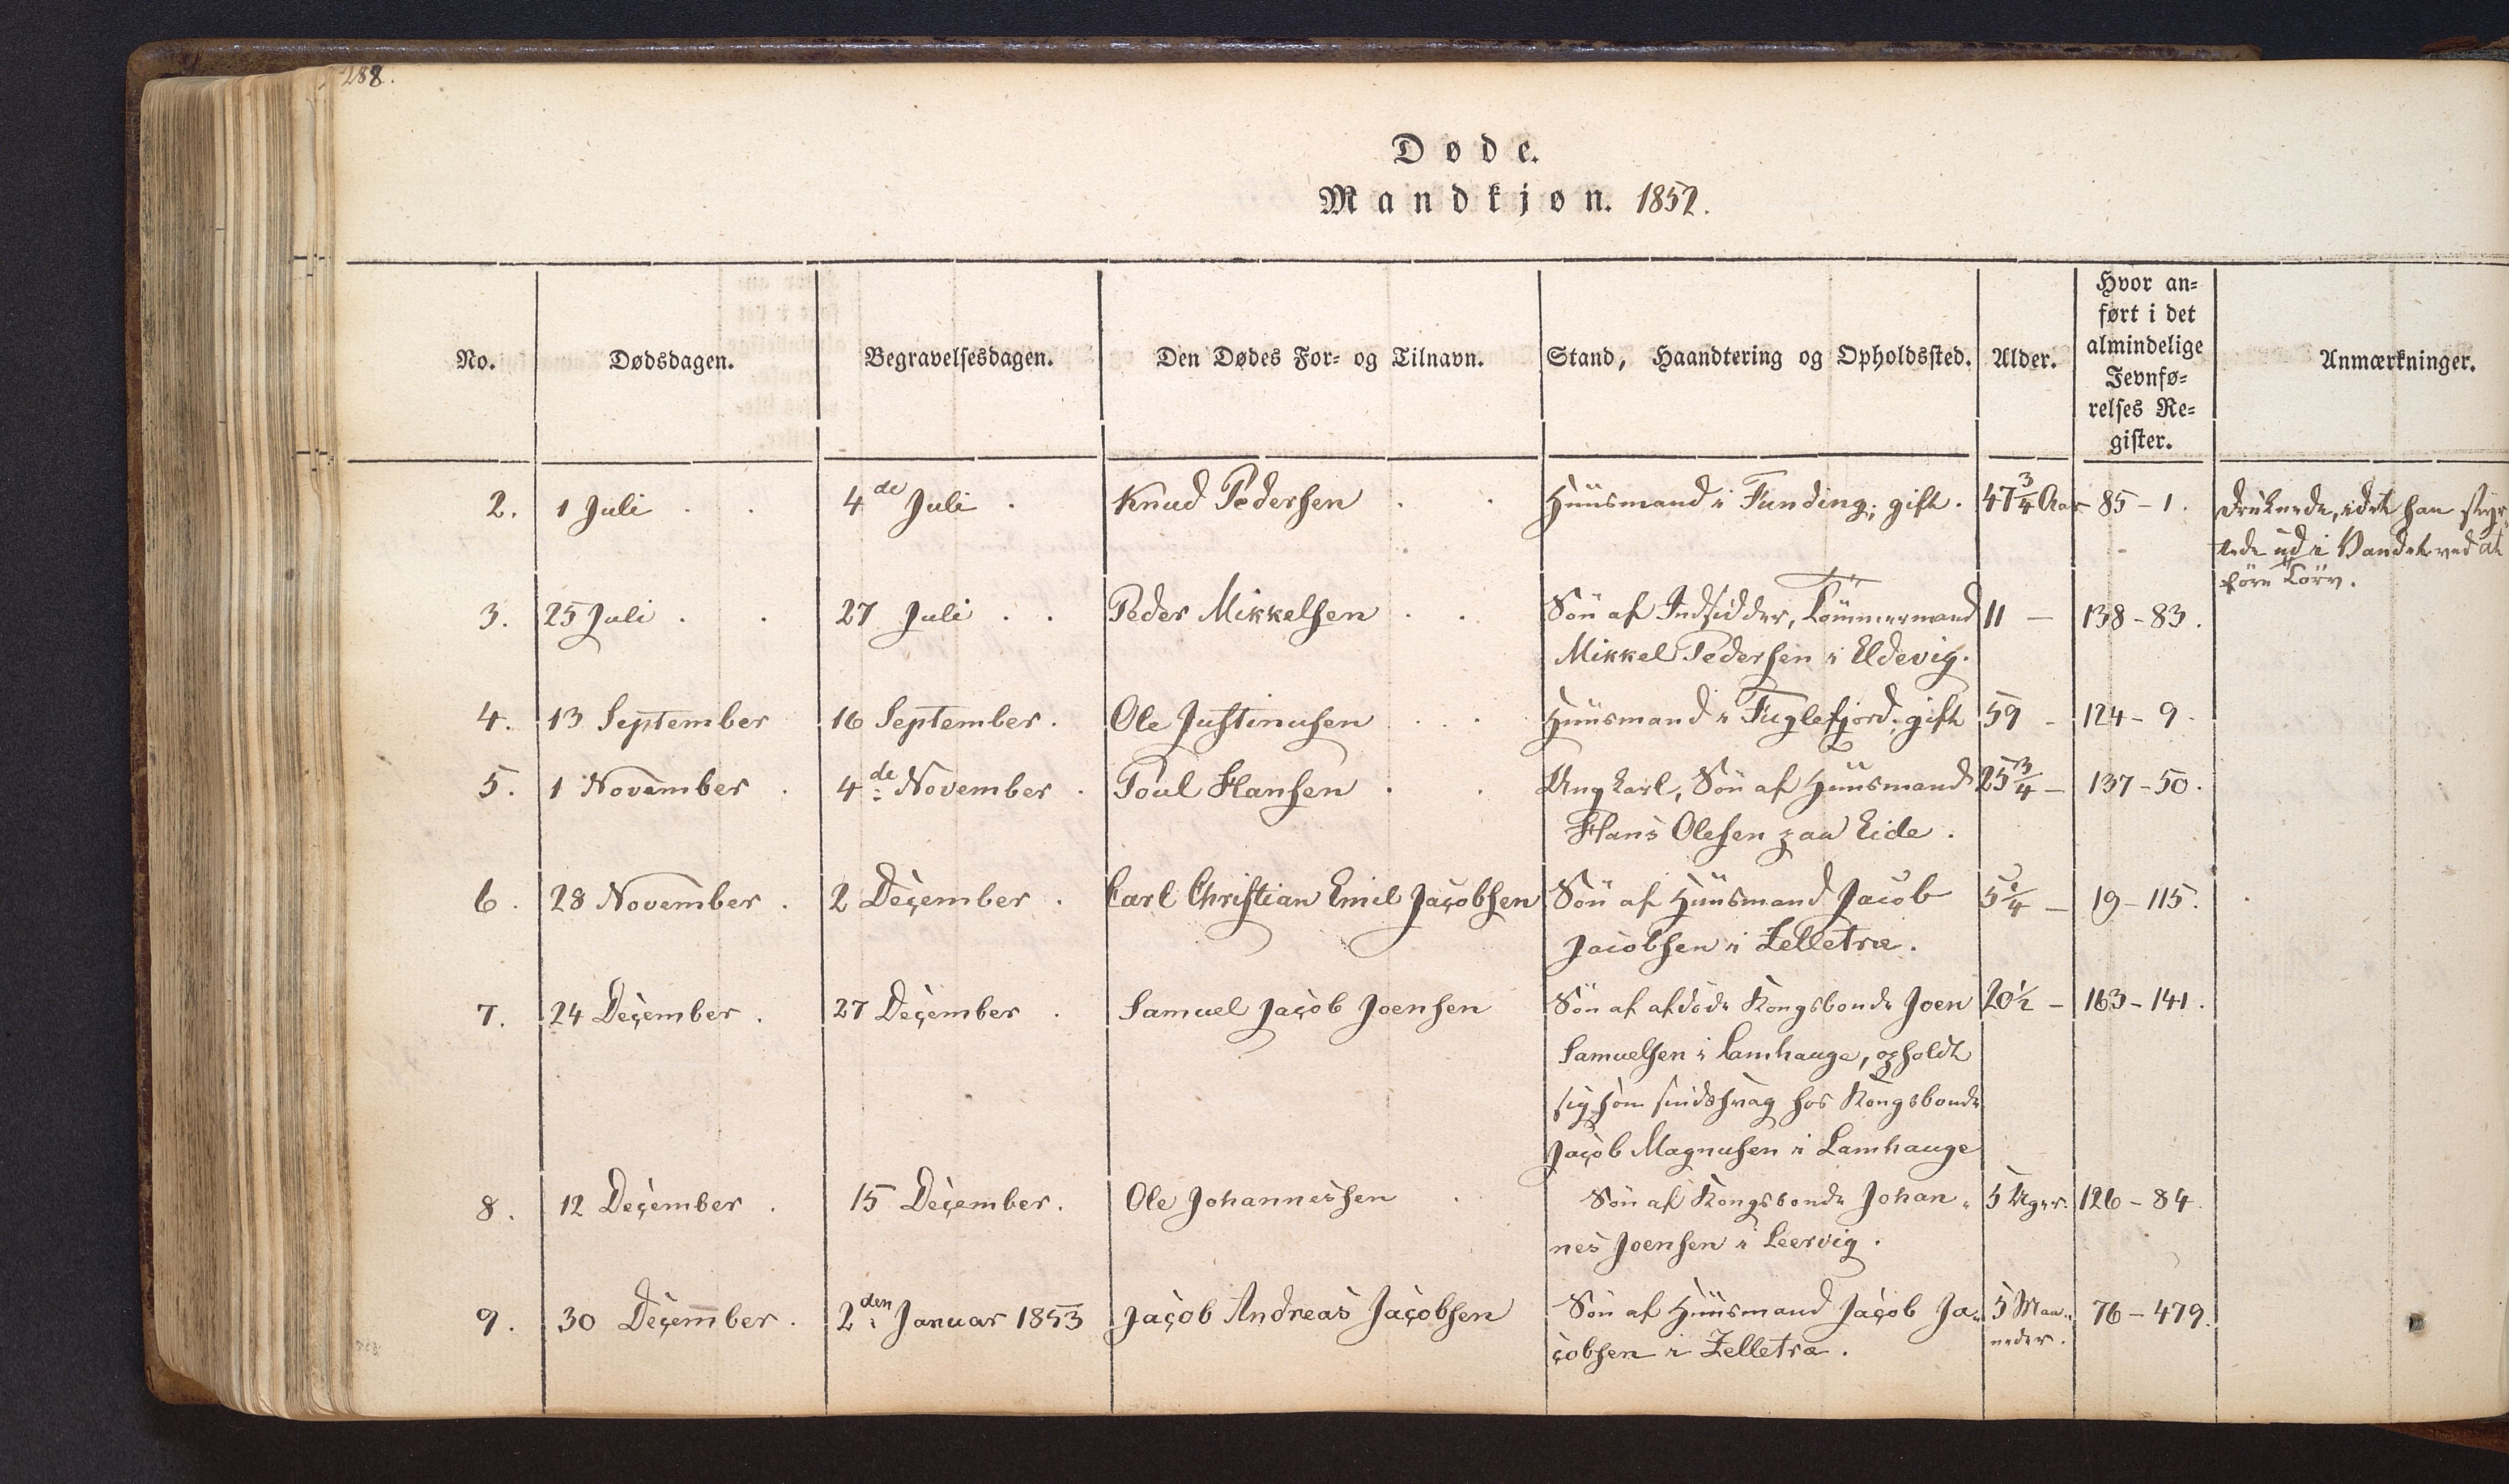 288.
Døde.
Mandkjøn. 1852.
No. Dødsdagen. Begravelsesdagen. Den Dødes For- og Tilnavn. Stand, Haandtering og Opholdssted. Alder. Hvor an-
ført i det
almindelige
Jevnfø-
relses Re-
gister.
Anmærkninger.
2. 1 Juli 4de Juli Knud Pedersen Huusmand i Funding; gift. 47 3/4 Aar 85 - 1. druknede, idet han styr-
tede ud i Vandet ved at
före Törv.
3. 25 Juli 27 Juli Peder Mikkelsen Sön af Indsidder, Tömmermand 11 - 138 - 83.
Mikkel Pedersen i Eldevig.
4. 13 September 16 September. Ole Justinusen Huusmand i Fuglefjord, gift 59 - 124 - 9.
5. 1 November 4de November Poul Hansen Ung Karl, Sön af Huusmand 25 3/4 - 137 - 50.
Hans Olesen paa Eide.
6. 28 November. 2 December Carl Christian Emil Jacobsen Sön af Huusmand Jacob 5 1/4 - 19 - 115.
Jacobsen i Zelletræ.
7. 24 December. 27 December Samuel Jacob Joensen Sön af afdöde Kongsbonde Joen 20 1/2 - 163 - 141.
Samuelsen i Lamhauge, opholdt
sig som sindssvag hos Kongsbonde
Jacob Magnusen i Lamhauge
8. 12 December. 15 December. Ole Johannessen Sön af Kongsbonde Johan- 5 Uger. 126 - 84.
nes Joensen i Leervig.
9. 30 December. 2den Januar 1853 Jacob Andreas Jacobsen Sön af Huusmand Jacob Ja- 5 Maa- 76 - 479.
cobsen i Zelletræ. neder.